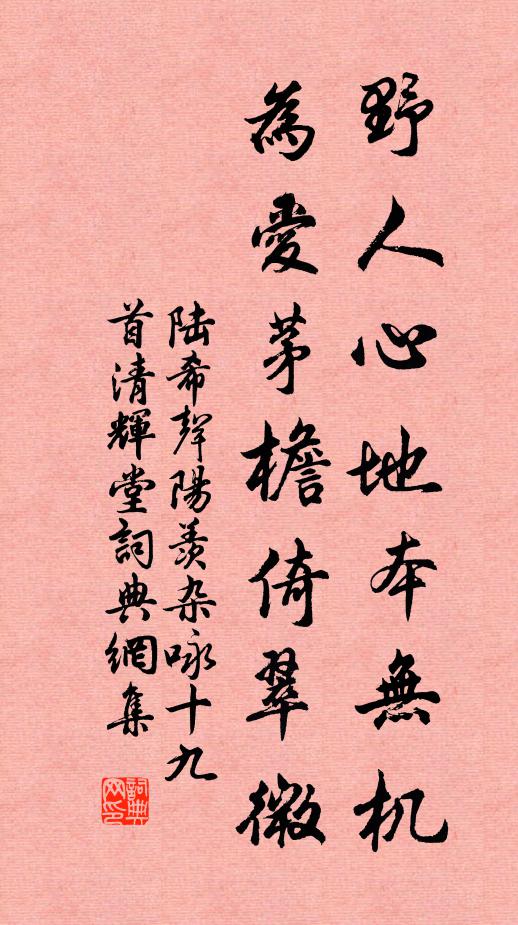 野人心地本無机
為愛茅檐倚翠微
陆希聲陽羨杂咏十九
首清輝堂詞典網集
詞典
网印